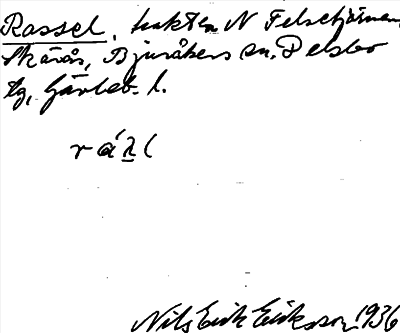 Rassel, trakten N Felstjärnen,
Skärås, Bjuråkers sn, Delsbo
tg, Gävleb. l.
Nils Erik Eriksson 1936